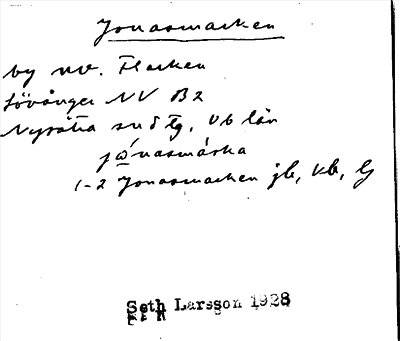 Jonasmarken
by nv. Flarken
Lövånger NV B2
Nysätra snd Tg, Vb län
jónasmárka
1-2 Jonasmarken jb, kb, Lj
Seth Larsson 1928